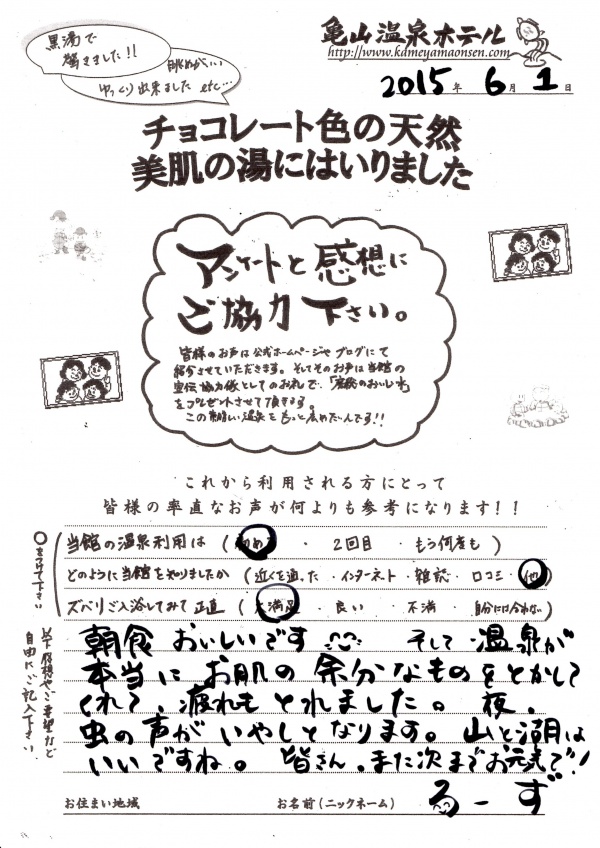 黒湯で
驚きました!!
眺めがいい
ゆっくり出来ました etc...
亀山温泉ホテル
http://www.kameyamaonsen.com
2015年 6月 1日
チョコレート色の天然
美肌の湯にはいりました
アンケートと感想に
ご協力下さい。
皆様のお声は公式ホームページやブログにて
紹介させていただきます。そしてそのお声は当館の
宣伝協力係としてのお礼で、「産院のおいしい水」
をプレゼントさせて頂きます。
この素晴しい温泉をもっと広めたいんです!!
これから利用される方にとって
皆様の率直なお声が何よりも参考になります!!
○をつけて下さい
当館の温泉利用は (初めて ・ 2回目 ・ もう何度も)
どのように当館を知りましたか (近くを通った ・ インターネット ・ 雑誌 ・ 口コミ ・ 他)
ズバリご入浴してみて正直 (大満足 ・ 良い ・ 不満 ・ 自分には合わない)
以下感想やご要望など
自由にご記入下さい
朝食おいしいです そして温泉が
本当にお肌の余分なものをとかして
くれて、疲れもとれました。夜、
虫の声がいやしとなります。山と湖は
いいですね。皆さん、また次までお元気で!!
お住まい地域 お名前(ニックネーム) るーず